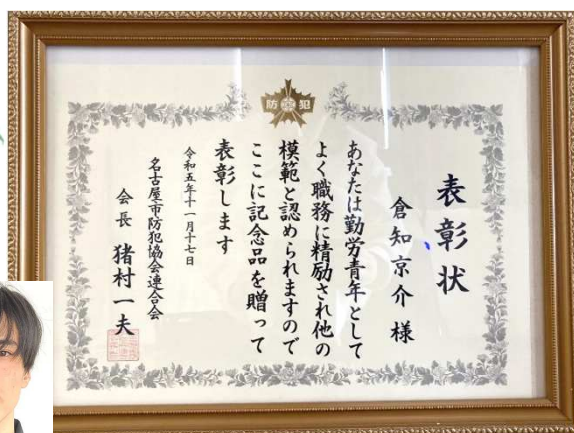 防犯
表彰状
倉知京介様
あなたは勤労青年として
よく職務に精励され他の
模範と認められますので
ここに記念品を贈って
表彰します
令和五年十一月十七日
名古屋市防犯協会連合会
会長 猪村一夫